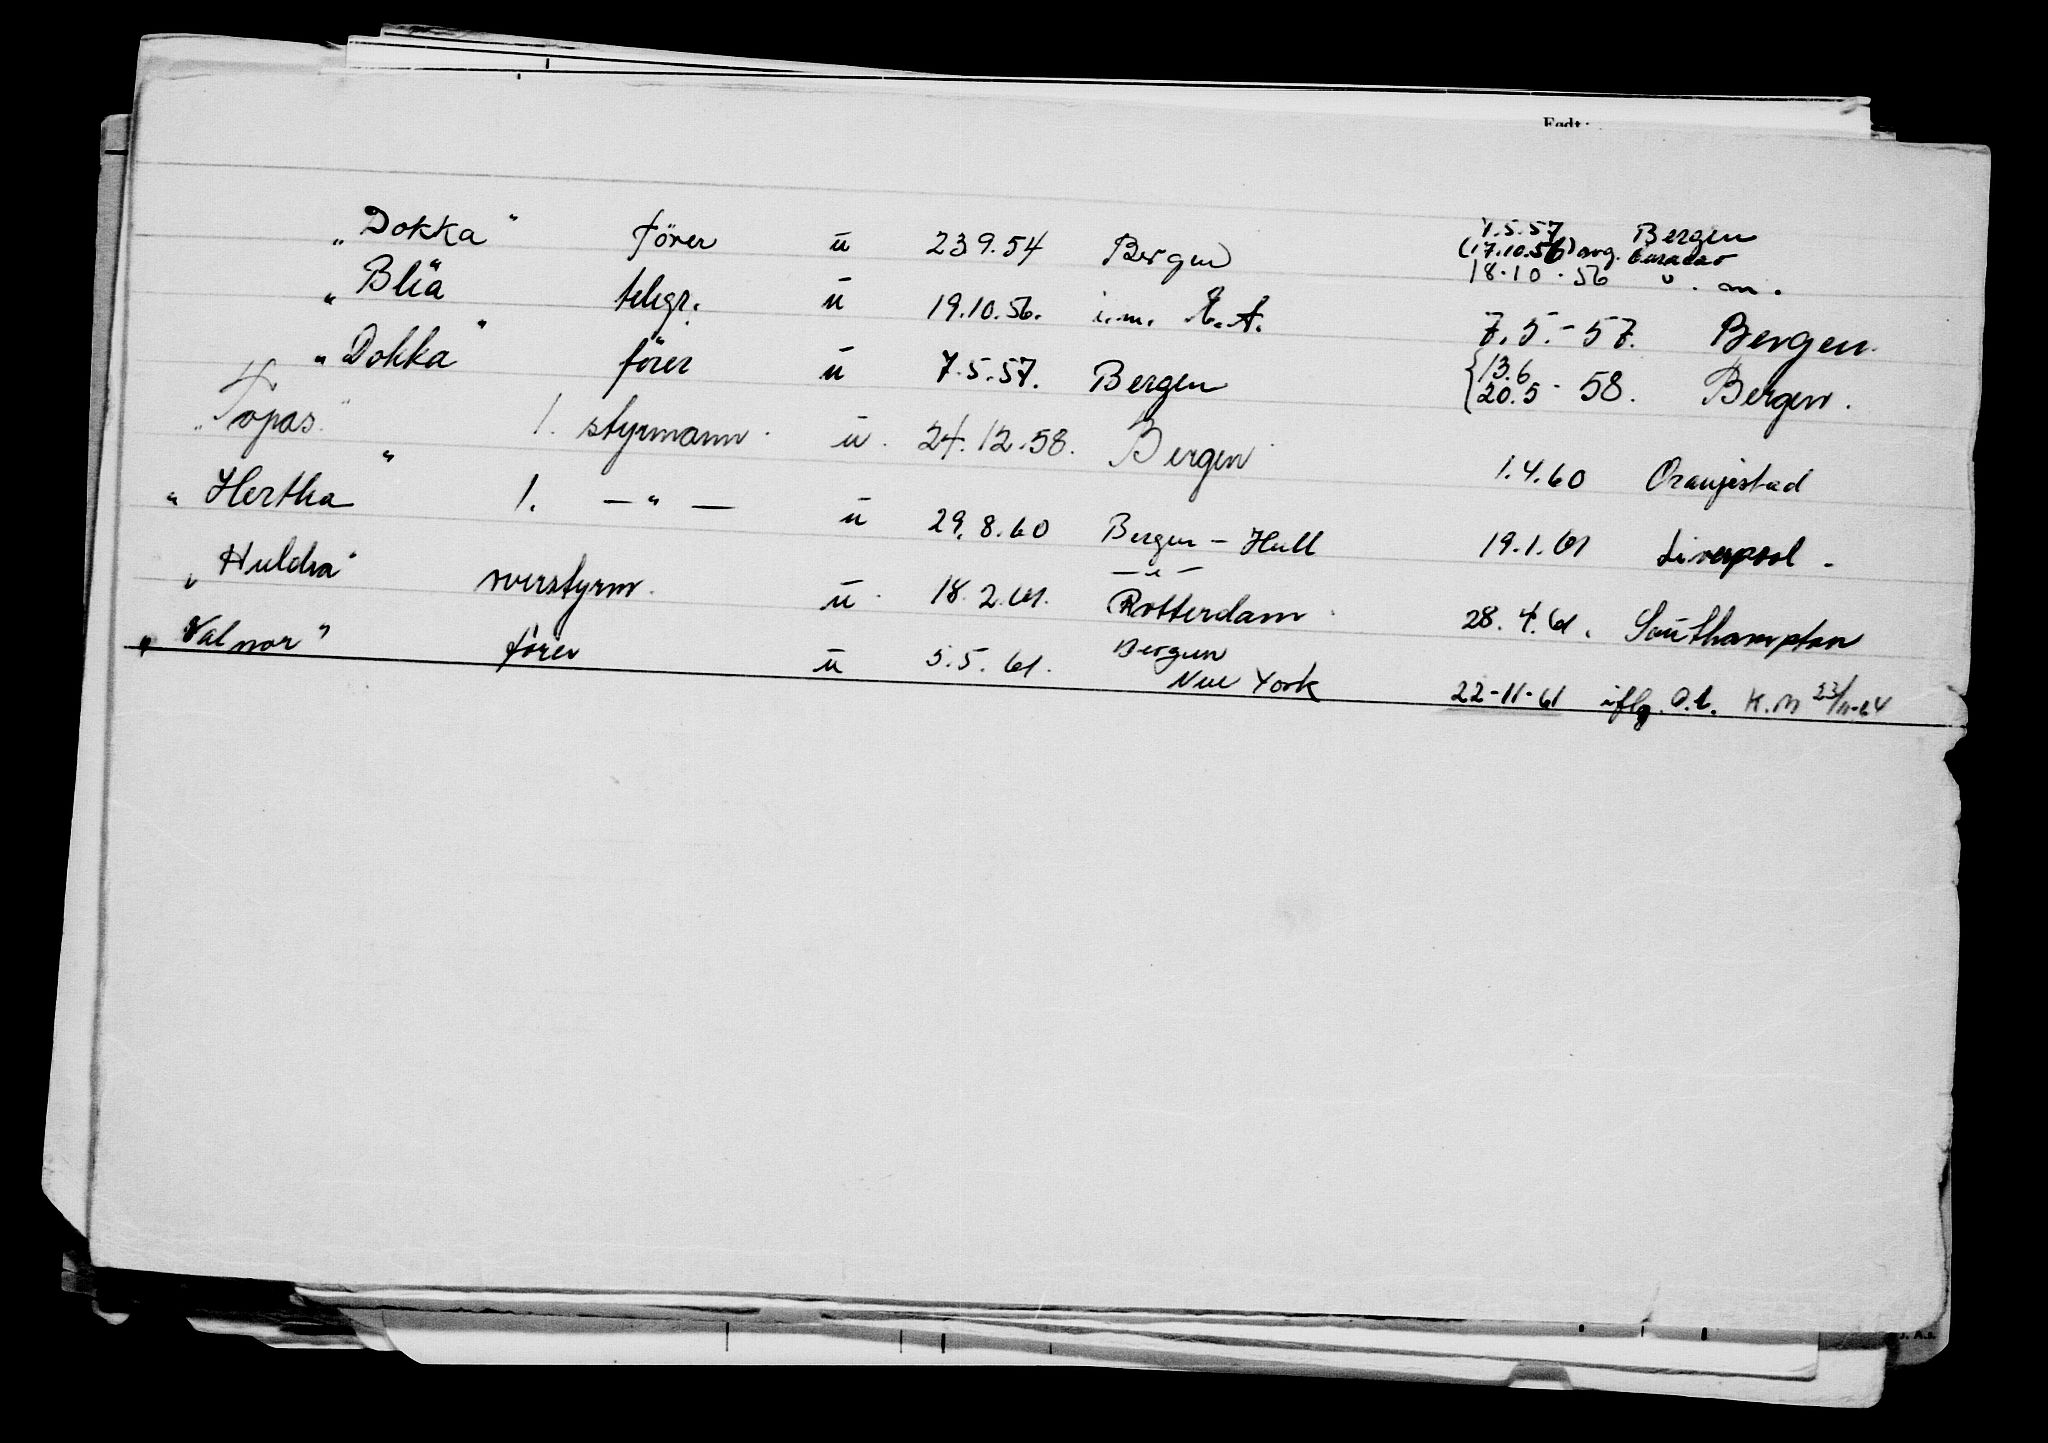 Født:
7.5.57 Bergen
„Dokka" förer u 23 9.54 Bergen (17.10.56) avg. Curacao
18.10.56 u.m.
„Blia telegr. u 19.10.56. i.m. 7.5.-57. Bergen.
„Dokka" förer u 7.5.57. Bergen {13.6
20.5-58. Bergen.
„Topas" 1. styrmann u. 24.12.58. Bergen 1.4.60 Oranjestad
„Hertha" 1. — " — u 29.8.60 Bergen - Hull 19.1.61 Liverpool.
— " —
„Huldra" overstyrm. u. 18.2.61. Rotterdam 28.4.61. Southampton
„Valnor" förer u 5.5.61. Bergen
New York 22-11-61 iflg. K.M 23/11-64
J. A.s.